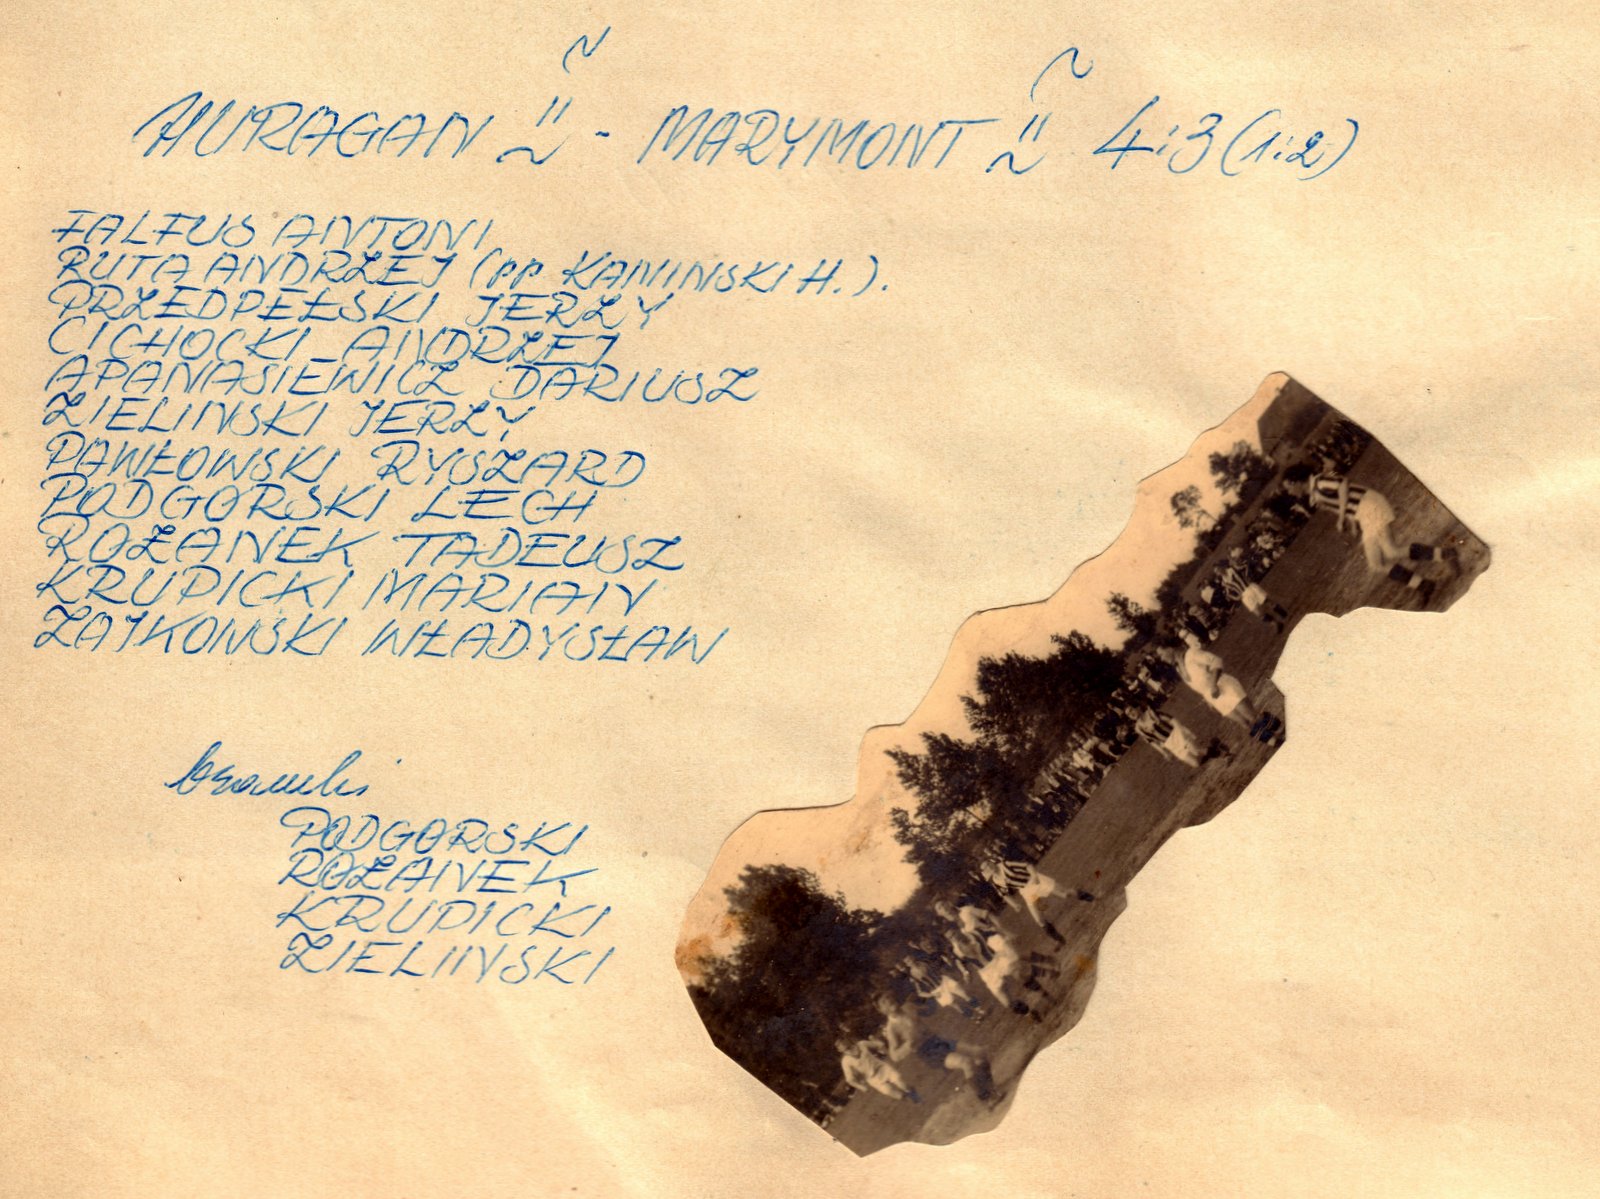 HURAGAN II - MARYMONT II 4:3 (1:2)
FALFUS ANTONI
RUTA ANDRZEJ (pp KAMINSKI H.).
PRZEDPEŁSKI JERZY
CICHOCKI ANDRZEJ
APANASIEWICZ DARIUSZ
ZIELINSKI JERZY
PAWŁOWSKI RYSZARD
PODGORSKI LECH
ROŻANEK TADEUSZ
KRUPICKI MARIAN
ZAJKOWSKI WŁADYSŁAW
bramki
PODGORSKI
ROŻANEK
KRUPICKI
ZIELINSKI